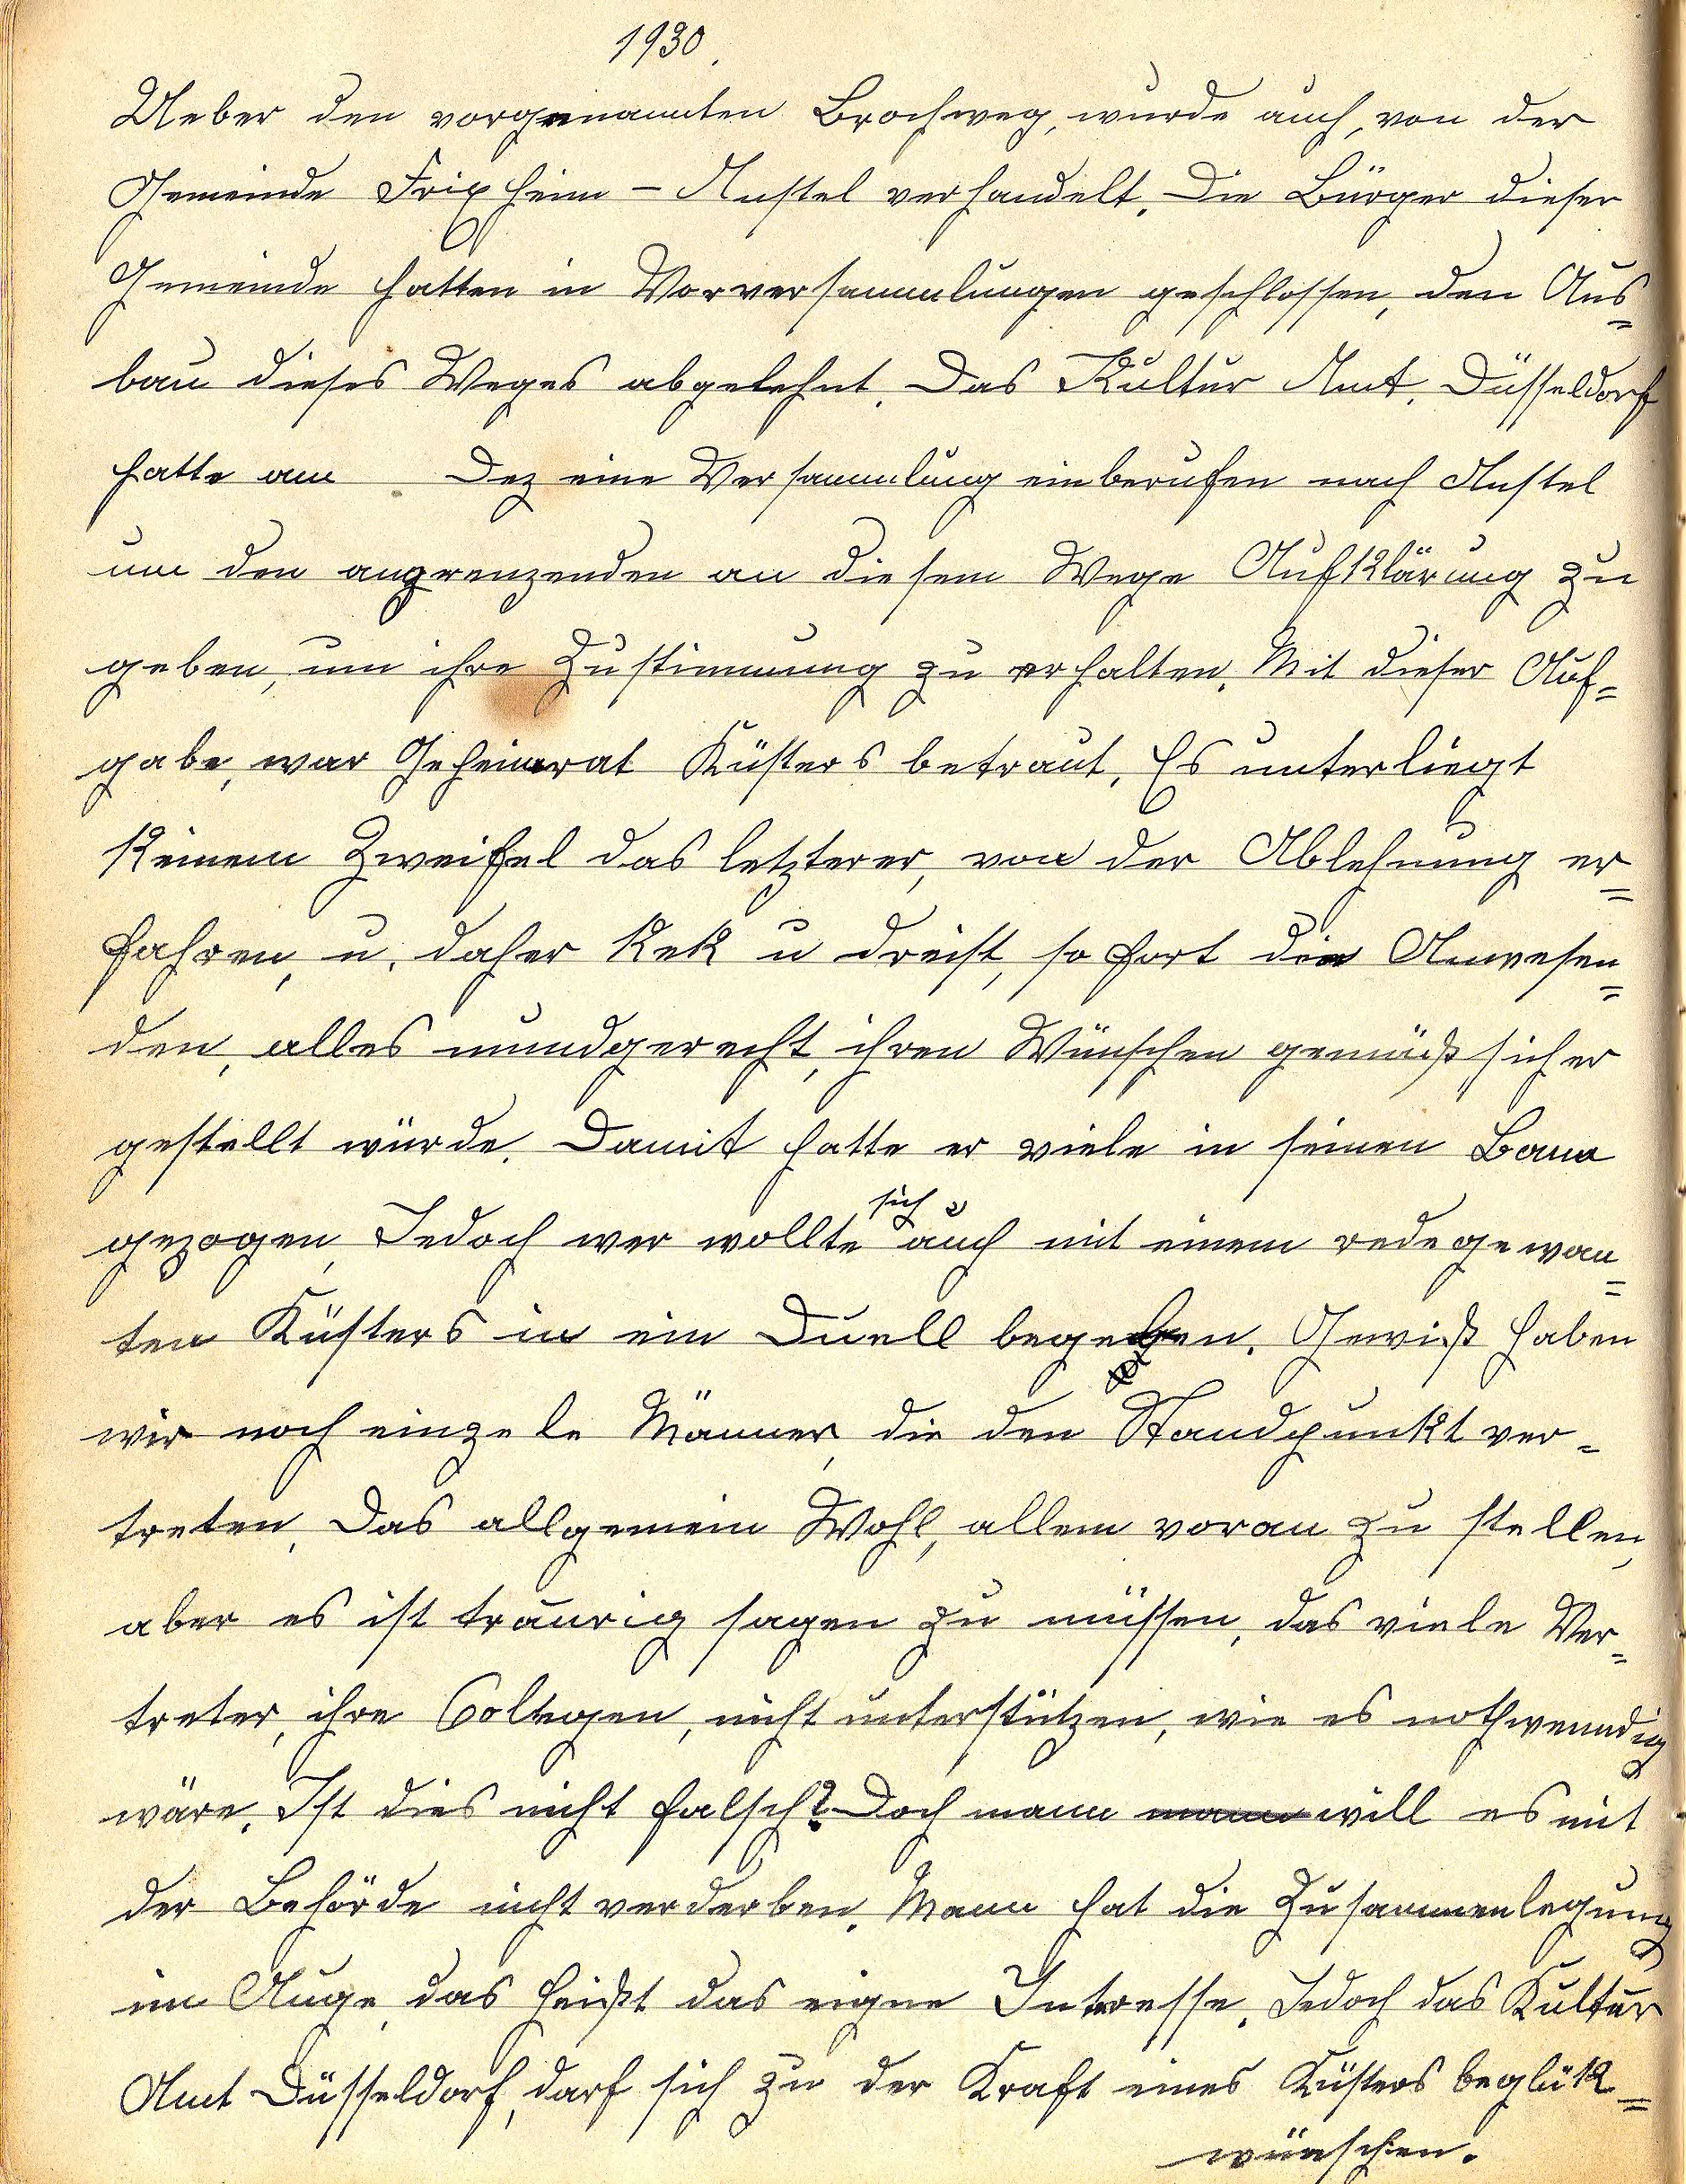 1930.
Ueber den vorgenannten Brochweg, wurde auch, von der
Gemeinde Frixheim - Anstel verhandelt. Die Bürger dieser
Gemeinde hatten in Vorversammlungen geschlossen, den Aus=
bau dieses Weges abgelehnt. Das Kultur Amt. Düsseldorf
hatte am Dez eine Versammlung einberufen nach Anstel
um den angrenzenden an diesem Wege Aufklärung zu
geben, um ihre Zustimmung zu erhalten. Mit dieser Auf=
gabe, war Geheimrat Küsters betraut. Es unterliegt
keinem Zweifel das letzterer, von der Ablehnung er=
fahren, u. daher kek u dreist, sofort die Anwesen=
den, alles mundgerecht, ihren Wünschen gemäß sicher
gestellt würde. Damit hatte er viele in seinen Bann
gezogen, Jedoch wer wollte sich auch mit einem redegewan=
ten Küsters in ein Duell begeben. Gewiß haben
wir noch einzele Männer, die den Standpunkt ver=
treten, Das allgemein Wohl, allem voran zu stellen,
aber es ist traurig sagen zu müssen, das viele Ver=
treter, ihre Collegen, nicht unterstützen, wie es nothwenndig
wäre. Ist dies nicht falsch? Doch mann mann will es mit
der Behörde nicht verderben. Mann hat die Zusammenlegung
im Auge, das heißt das eigne Interesse. Jedoch das Kultur
Amt Düsseldorf, darf sich zu der Kraft eines Küsters beglük=
wünschen.